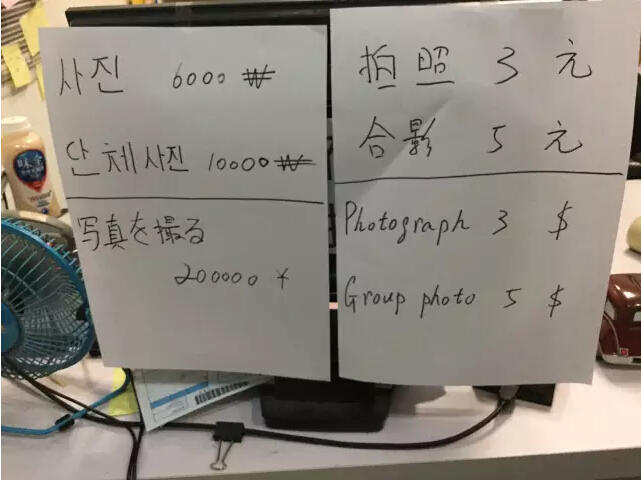 사진 6000 ₩
단체사진 10000 ₩
写真を撮る
200000 ¥
拍照 3 元
合影 5 元
Photograph 3 $
Group photo 5 $